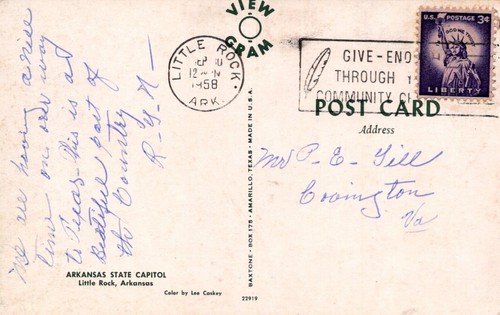 VIEW
GRAM
LITTLE ROCK
SEP 10
12
1958
ARK.
GIVE-END
THROUGH Y
COMMUNITY C
U.S. POSTAGE 3¢
IN GOD WE TRUST
LIBERTY
POST CARD
Address
Mr P. E. Gill
Covington
Va
We are having a nice
time on our way
to Texas - This is a
beautiful part of
the Country
R-Y-N-
BAXTONE • BOX 175 • AMARILLO, TEXAS • MADE IN U.S.A.
ARKANSAS STATE CAPITOL
Little Rock, Arkansas
Color by Lee Caskey
22919